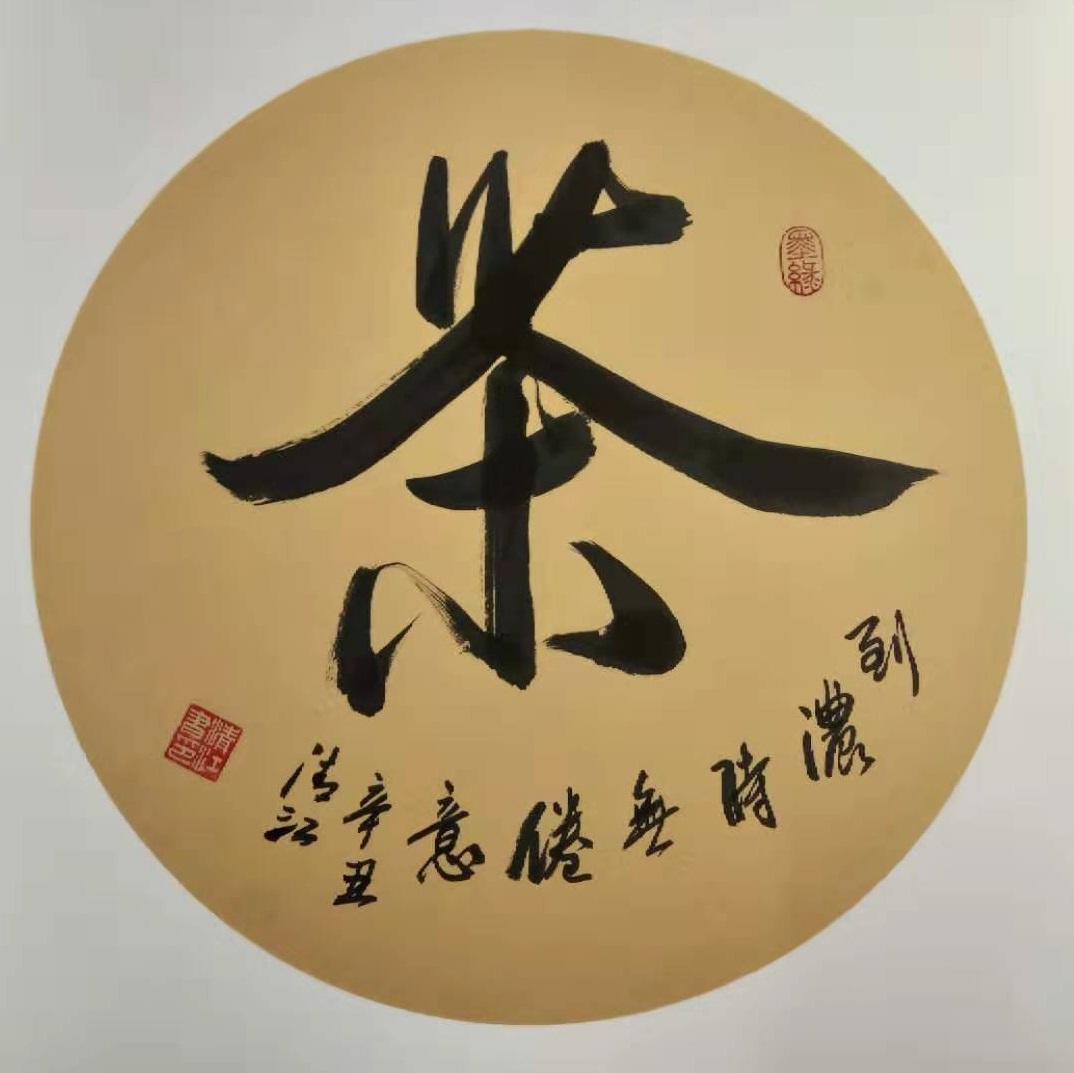 茶
到濃時無倦意
辛丑
清江
清江書印